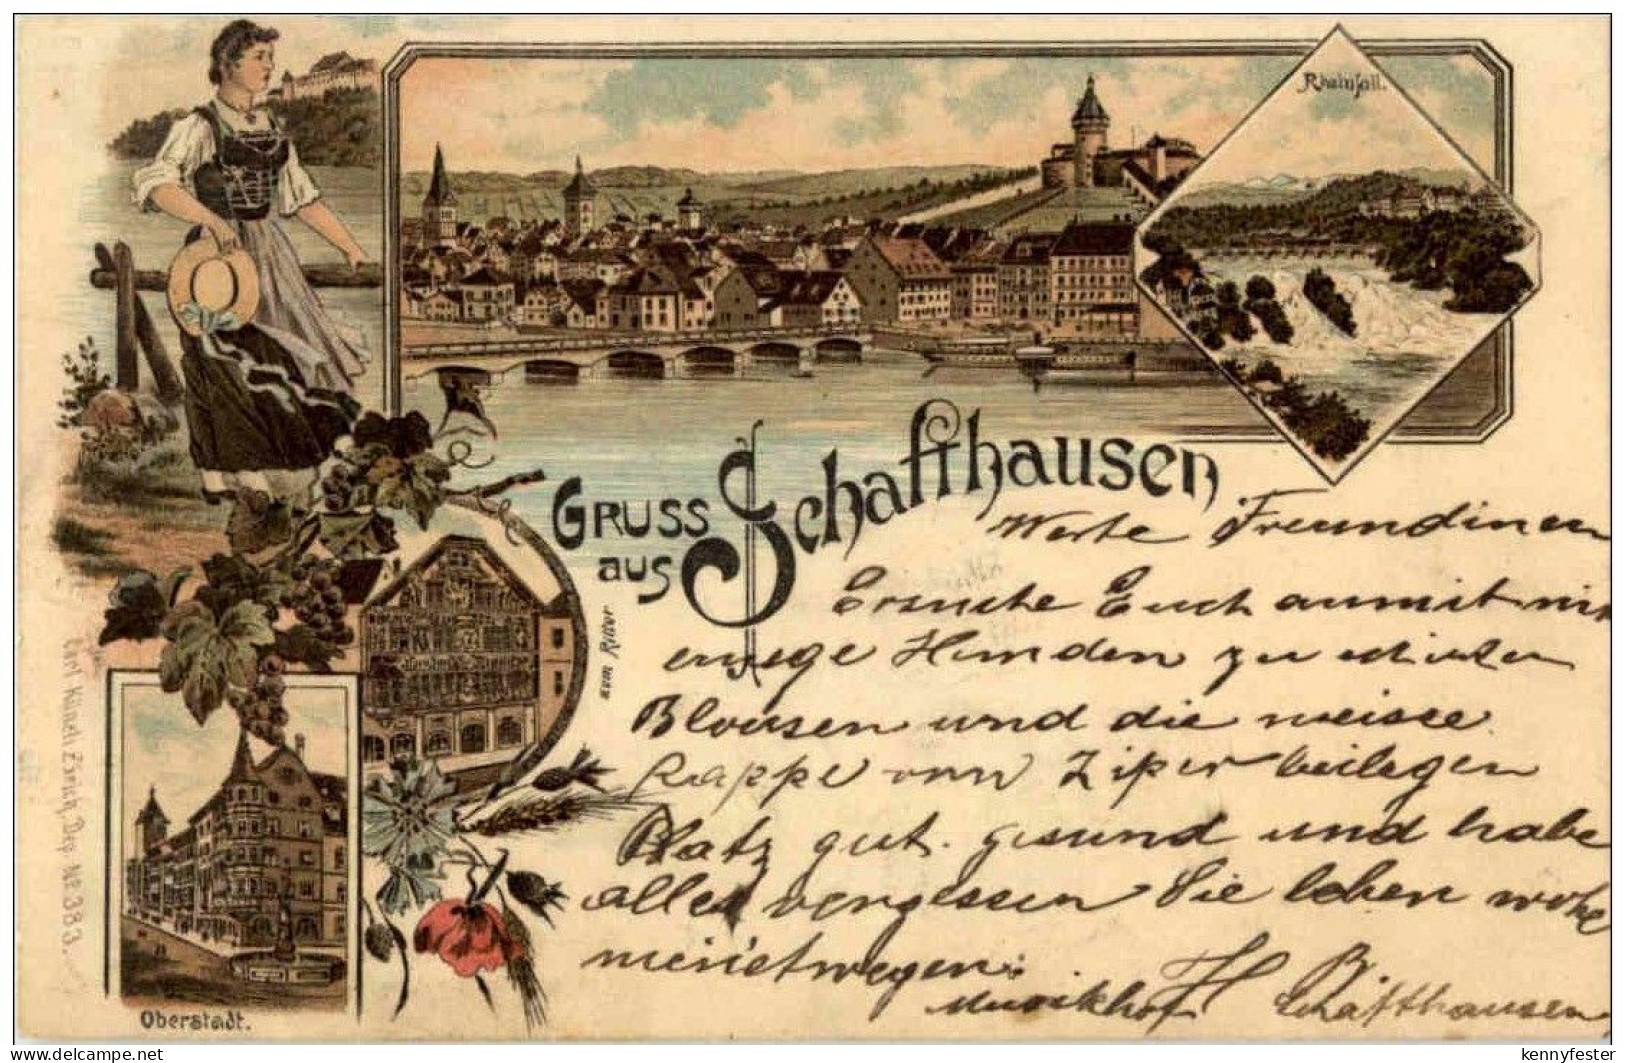 Rheinfall.
GRUSS aus Schaffhausen
zum Ritter
Oberstadt.
Carl Künzli Zürich, Dep. № 383.
Werte Freundinen
Ersuche Euch anmit mir
einige Hemden zu schicken
Blousen und die weisse
Kappe von beilegen
Platz gut. gesund und habe
alles vergessen Sie leben wohl
meinetwegen.
Musikhof H B Schaffhausen
delcampe.net
kennyfester